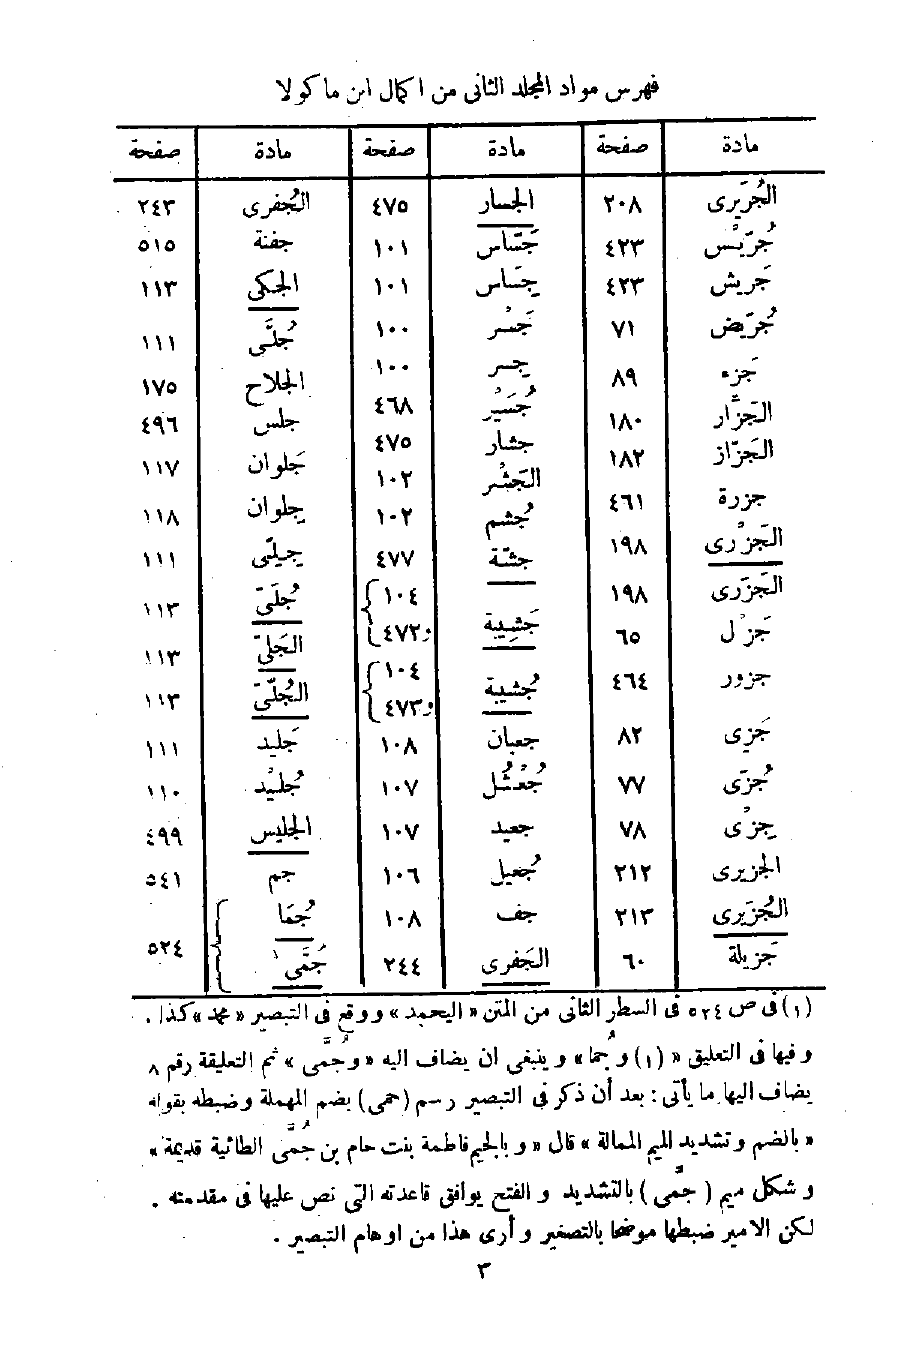 فهرس مواد المجلد الثانى من اكمال ابن ماكولا
مادة صفحة مادة صفحة مادة صفحة
الجُرَيرى ٢٠٨ الجسار ٤٧٥ الجُفرى ٢٤٣
جُرَيْس ٤٢٣ جَسّاس ١٠١ جفنة ٥١٥
جَريش ٤٢٣ جِساس ١٠١ الجكى ١١٣
جُرَيض ٧١ جَسْر ١٠٠ جُلَّى ١١١
جَزء ٨٩ جِسر ١٠٠ الجلاح ١٧٥
الجَزَّار ١٨٠ جُسَيْر ٤٦٨ جلس ٤٩٦
الجَزّاز ١٨٢ جشار ٤٧٥ جَلوان ١١٧
جزرة ٤٦١ الجَشْر ١٠٢ جِلوان ١١٨
الجَزْرى ١٩٨ جُشم ١٠٢ جِيلَى ١١١
الجَزَرى ١٩٨ جشّة ٤٧٧ جُلَىّ ١١٣
جَزْل ٦٥ جَشِيبة ١٠٤ و٤٧٢ الجَلىّ ١١٣
جزور ٤٦٤ جُشيبة ١٠٤ و٤٧٣ الجُلّىّ ١١٣
جَزى ٨٢ جعبان ١٠٨ جَليد ١١١
جُزَى ٧٧ جُعْثُل ١٠٧ جُليْد ١١٠
جِزْى ٧٨ جعيد ١٠٧ الجليس ٤٩٩
الجزيرى ٢١٢ جُعيل ١٠٦ جم ٥٤١
الجُزَيرى ٢١٣ جف ١٠٨ جُمَا
جَزيلة ٦٠ الجَفرى ٢٤٤ جُمَّى١ ٥٢٤
(١) فى ص ٥٢٤ فى السطر الثانى من المتن «اليحمد» ووقع فى التبصير «محمد» كذا.
وفيها فى التعليق «(١) وجُما» وينبغى ان يضاف اليه «وجُمَّى» ثم التعليقة رقم ٨
يضاف اليها ما يأتى: بعد أن ذكر فى التبصير رسم (حمى) بضم المهملة وضبطه بقوله
«بالضم وتشديد الميم الممالة» قال «وبالجيم فاطمة بنت حام بن جُمَّى الطائية قديمة»
وشكل ميم (جمَّى) بالتشديد والفتح يوافق قاعدته التى نص عليها فى مقدمته.
لكن الامير ضبطها موضحا بالتصغير وأرى هذا من اوهام التبصير.
٣